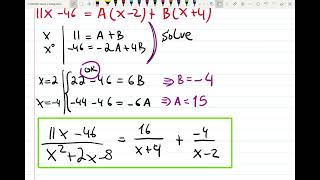 11x-46 = A(x-2) + B(x+4)
x | 11 = A+B
x⁰ | -46 = -2A+4B
solve
OK
x=2 { 22-46 = 6B ⇒ B=-4
x=-4 { -44-46 = -6A ⇒ A=15
11x-46 / x²+2x-8 = 16 / x+4 + -4 / x-2